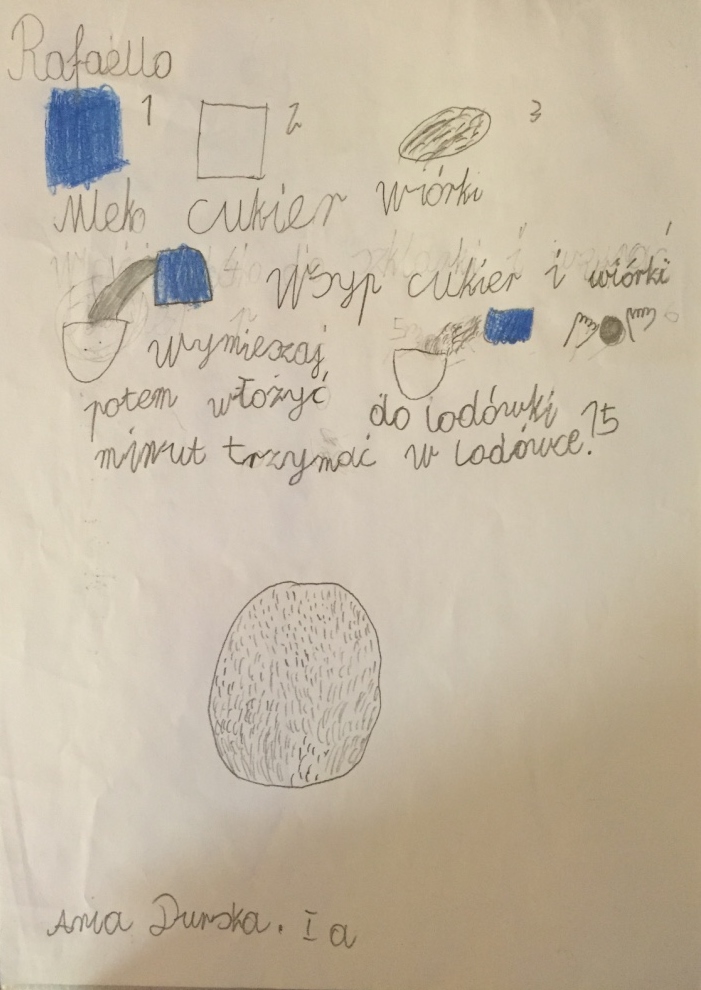 Rafaello
1 2 3
Mleko cukier wiórki
4 Wsyp cukier i wiórki
5 6
wymieszaj
potem włożyć do lodówki
minut trzymać w lodówce. 15
Ania Durska. I a